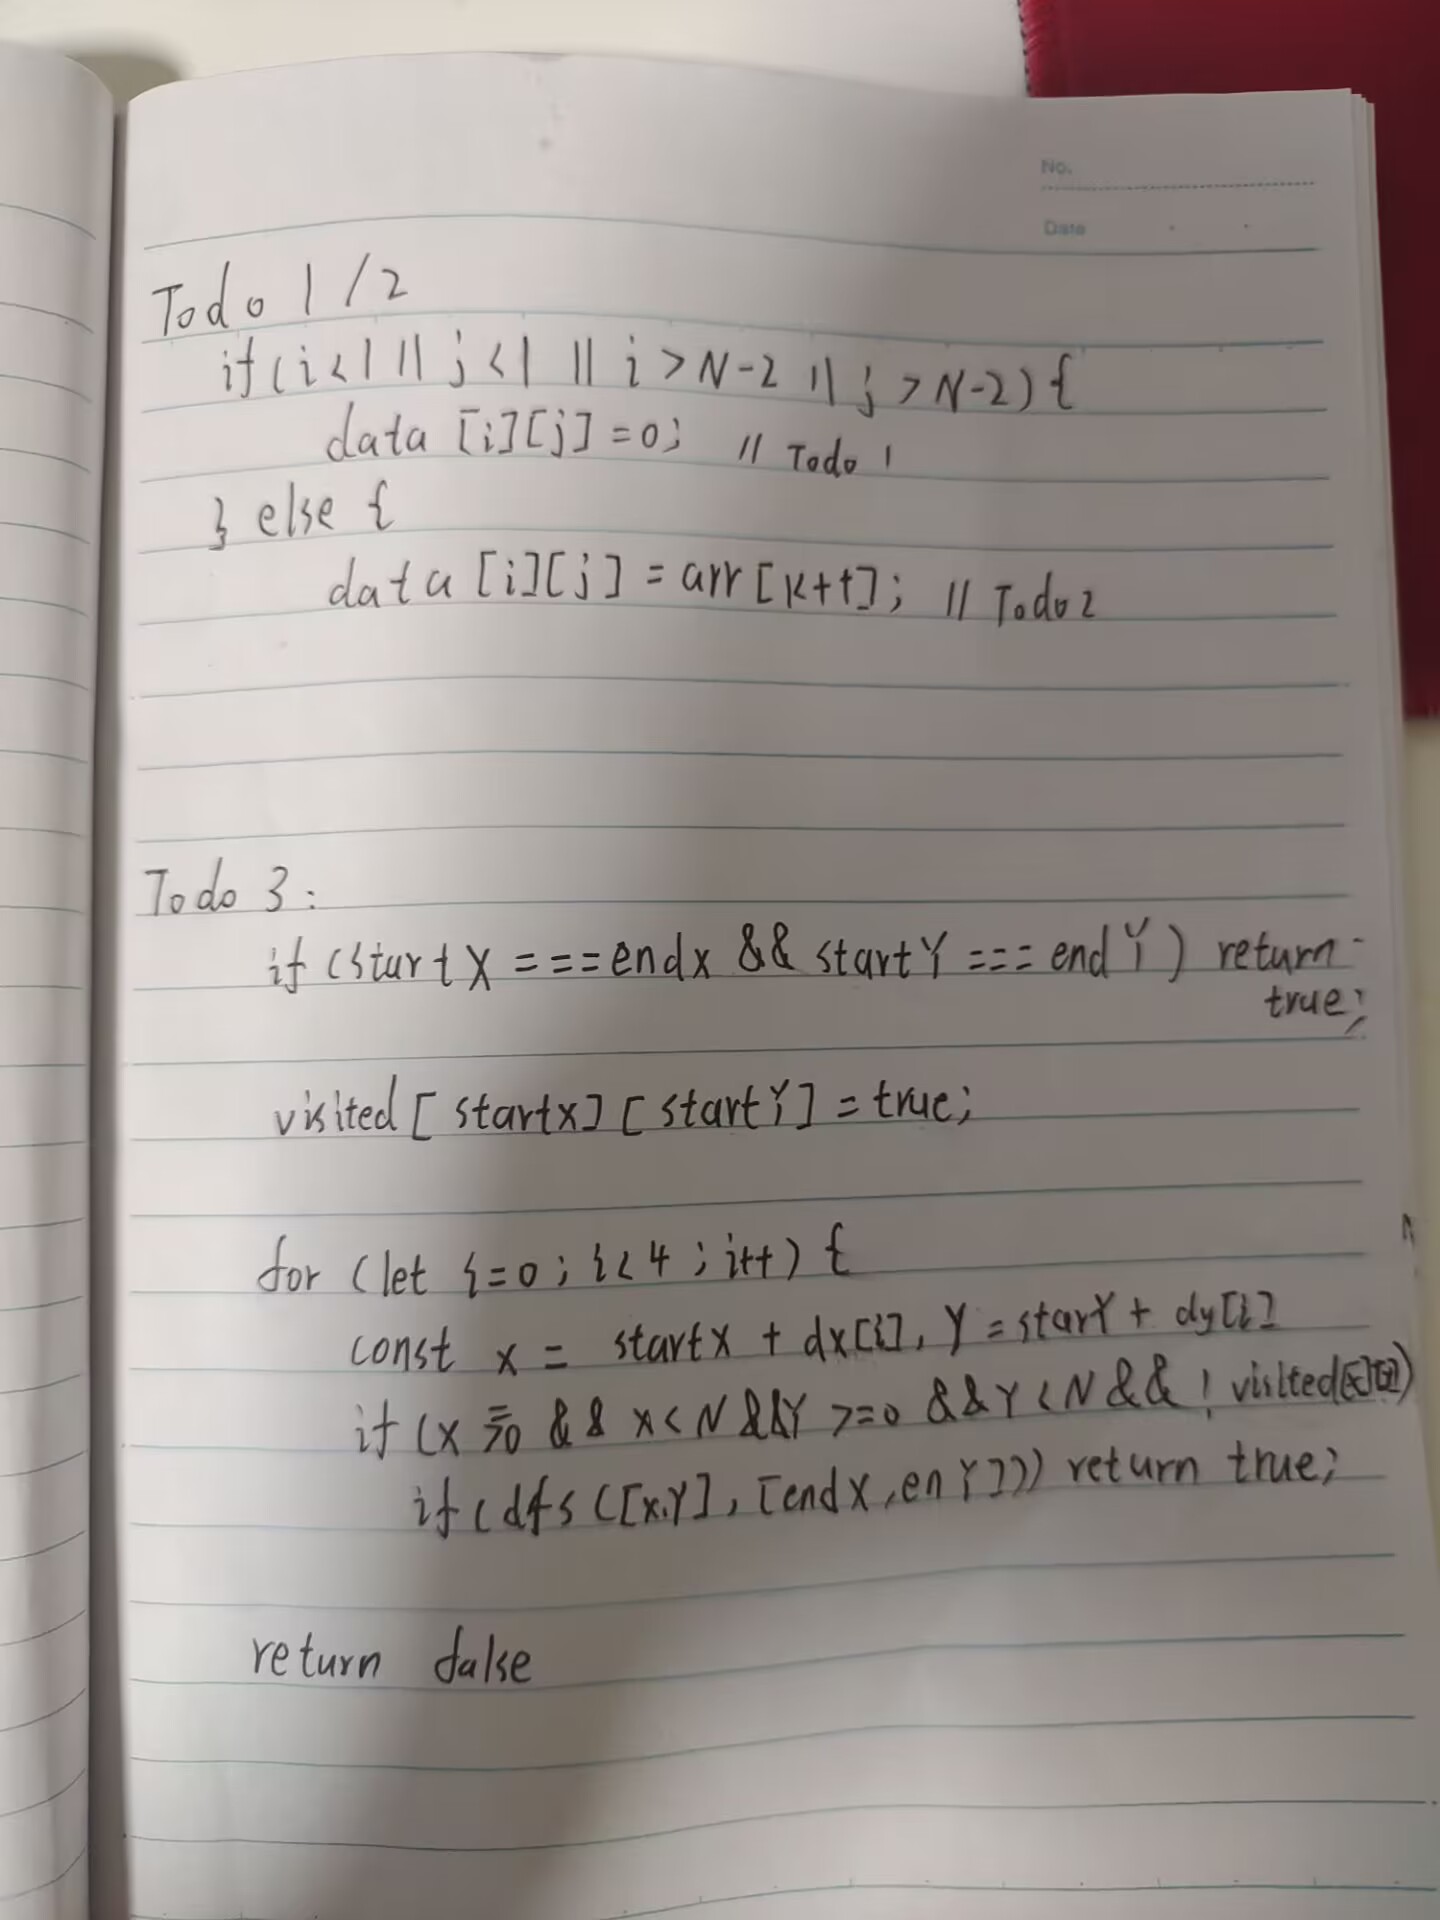 No.
Date
Todo 1/2
if(i<1 || j<1 || i>N-2 || j>N-2){
data [i][j]=0; // Todo 1
} else {
data [i][j] = arr[k++]; // Todo 2
Todo 3:
if (startX === endx && startY === endY) return
true;
visited[startx][startY] = true;
for (let i=0; i<4; i++) {
const x = startx + dx[i], Y = starY + dy[i]
if (x >=0 && x<N &&Y >=0 && Y<N && !visited[x][y])
if (dfs([x,Y], [endX,enY])) return true;
return false